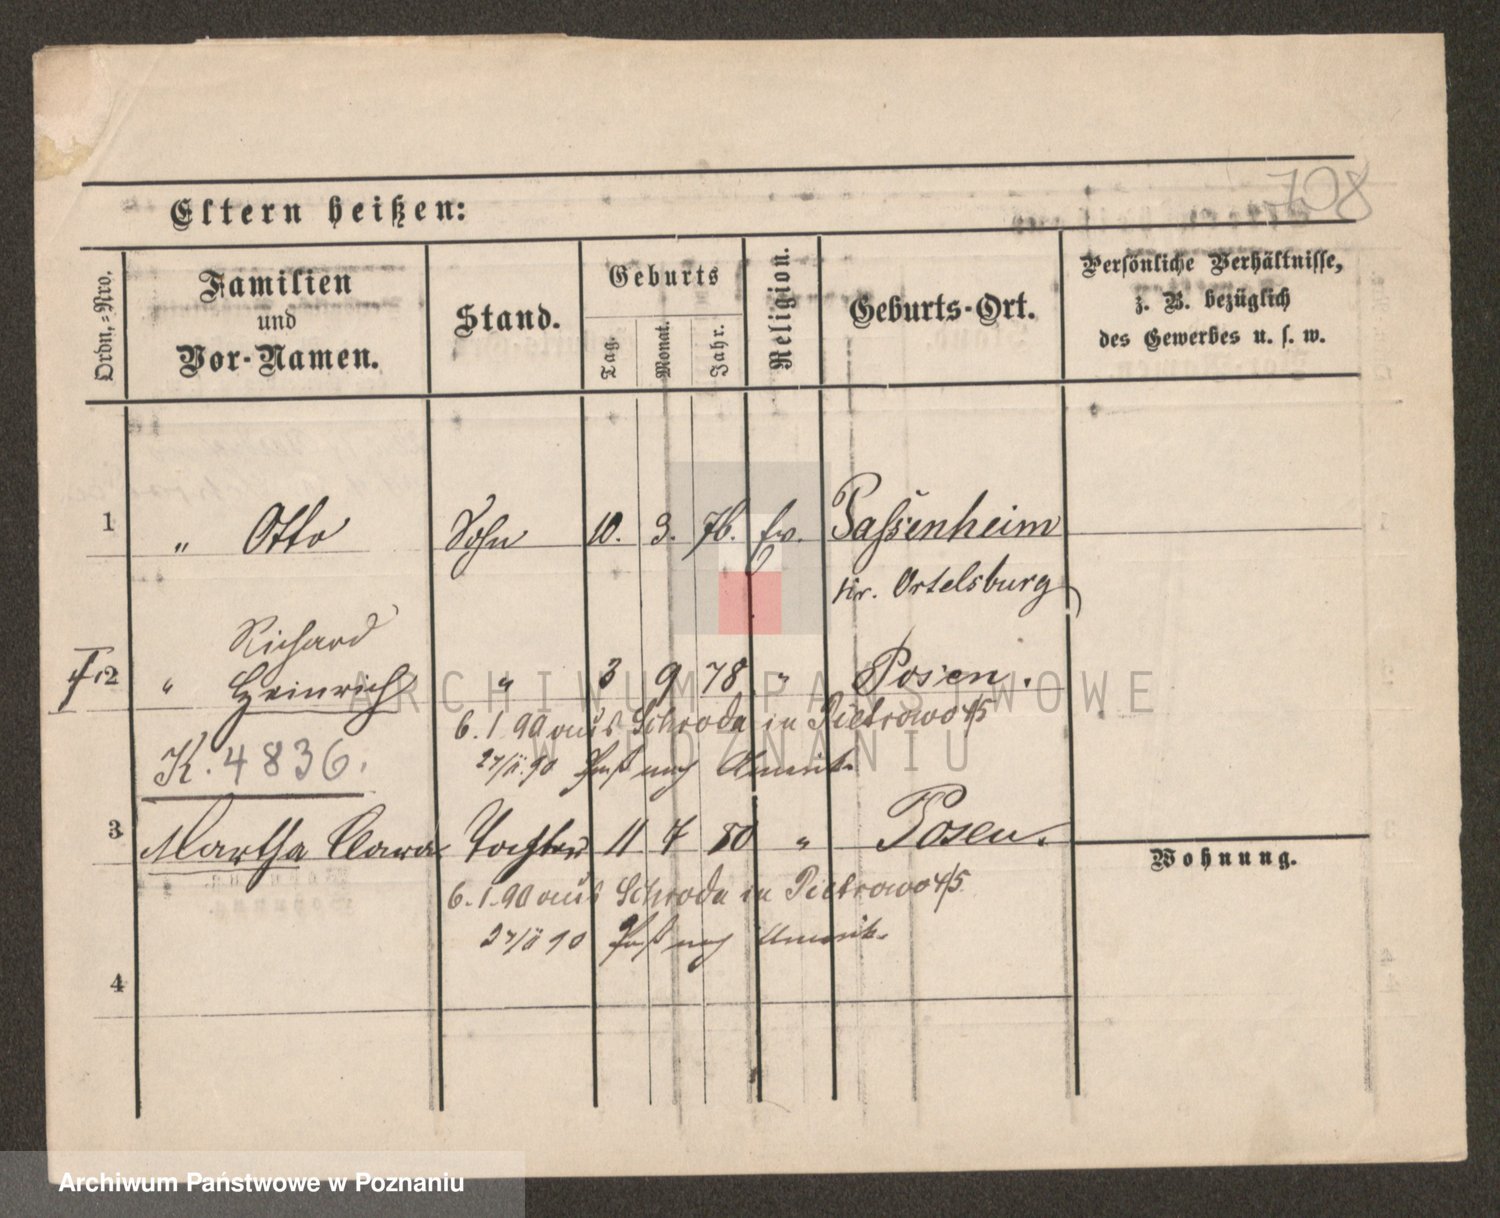 708
Eltern heißen:
Ordn.-Nro.
Familien
und
Vor-Namen.
Stand.
Geburts
Tag.
Monat.
Jahr.
Religion.
Geburts-Ort.
Persönliche Verhältnisse,
z. B. bezüglich
des Gewerbes u. s. w.
1 " Otto Sohn 10. 3. 76. ev. Passenheim
Kr. Ortelsburg
Richard
2 " Heinrich " 3 9 78 " Posen.
6.1.90 aus Schroda in Pietrowo 4/5
K. 4836.
27/II.90 Paß nach Amerik.
3 Martha Clara Tochter 11 7 80 " Posen.
Wohnung.
6.1.90 aus Schroda in Pietrowo 4/5
27/II 90 Paß nach Amerik.
4
ARCHIWUM PAŃSTWOWE
W POZNANIU
Archiwum Państwowe w Poznaniu